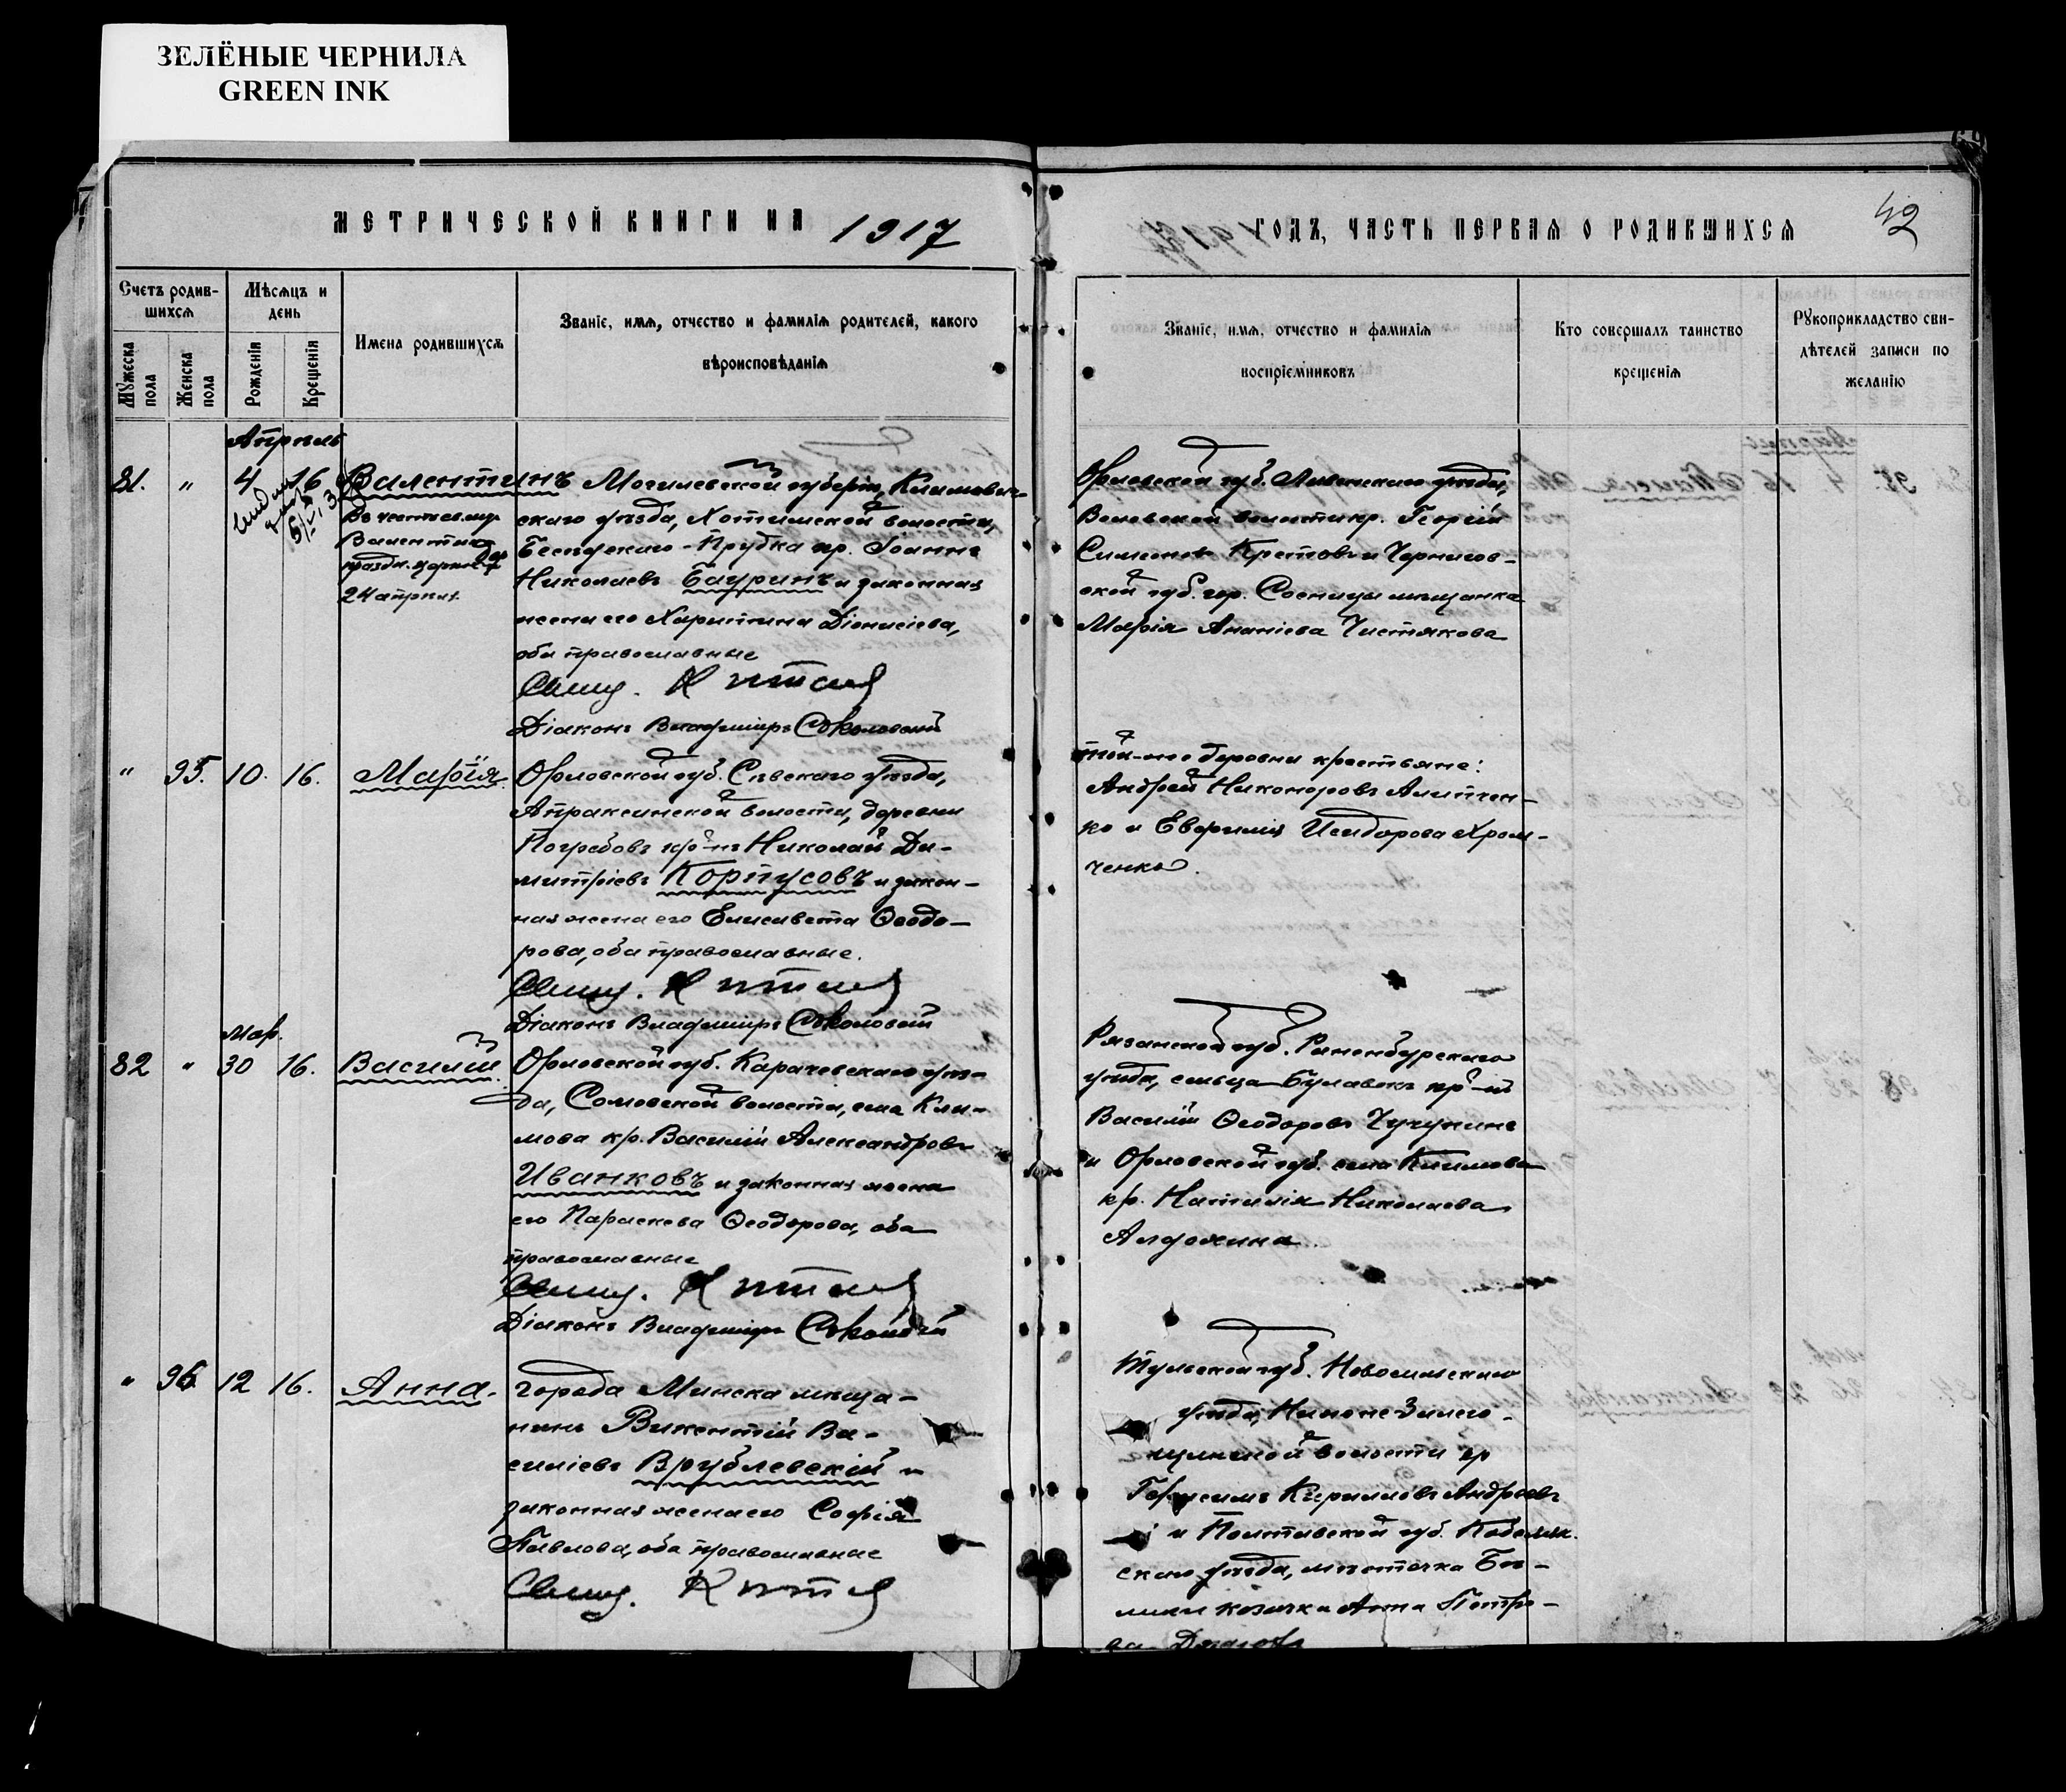 ЗЕЛЁНЫЕ ЧЕРНИЛА
GREEN INK
МЕТРИЧЕСКОЙ КНИГИ НА 1917
ГОДЪ, ЧАСТЬ ПЕРВАЯ О РОДИВШИХСЯ
42
Счетъ родив-
шихся
Мѣсяцъ и
день
Мужеска
пола
Женска
пола
Рожденія
Крещенія
Имена родившихся
Званіе, имя, отчество и фамилія родителей, какого
вѣроисповѣданія
Званіе, имя, отчество и фамилія
воспріемниковъ
Кто совершалъ таинство
крещенія
Рукоприкладство сви-
дѣтелей записи по
желанію
Апрѣль
81. " 4 16 Валентинъ
24 апрѣля.
Могилевской губерніи, Климович-
скаго уѣзда, Хотимской волости,
Прудка кр. Іоаннъ
Николаевъ Бауринъ и законная
жена его Харитина Діонисіева,
оба православные
Свящ.
Діаконъ Владиміръ Соколовскій
Орловской губ. Ливенскаго уѣзда,
волости кр. Георгій
Симеоновъ Кретовъ и Чернигов-
ской губ. гор. Сосницы мѣщанка
Марія Ананіева Чистякова
" 95. 10. 16. Марія
Орловской губ. Сѣвскаго уѣзда,
Апраксинской волости, деревни
Погребовъ кр-нъ Николай Ди-
митріевъ Корпусовъ и закон-
ная жена его Елисавета Ѳеодо-
рова, оба православные.
Свящ.
Діаконъ Владиміръ
той-же деревни крестьяне:
Андрей Никоноровъ
ко и Евфимія Исидорова Хром-
ченко.
Мар.
82 " 30 16. Василій
Орловской губ. Карачевскаго уѣз-
да, Сомовской волости, села Кли-
мова кр. Василій Александровъ
Иванковъ и законная жена
его Параскева Ѳеодорова, оба
православные
Свящ.
Діаконъ Владиміръ
Рязанской губ. Раненбургскаго
уѣзда, сельца Булавокъ кр-нъ
Василій Ѳеодоровъ Чучунинъ
и Орловской губ. села Климова
кр. Наталія Николаева
Алдохина
" 96 12 16. Анна.
города Минска мѣща-
нинъ Викентій Ва-
силіевъ Врублевскій и
законная жена его Софія
Павлова, оба православные
Свящ.
Тульской губ. Новосильскаго
уѣзда,
волости кр
Кирилловъ Андреевъ
и Полтавской губ. Кобеляк.
скаго уѣзда, мѣстечка Бѣ-
лики козачка Анна Петро-
ва